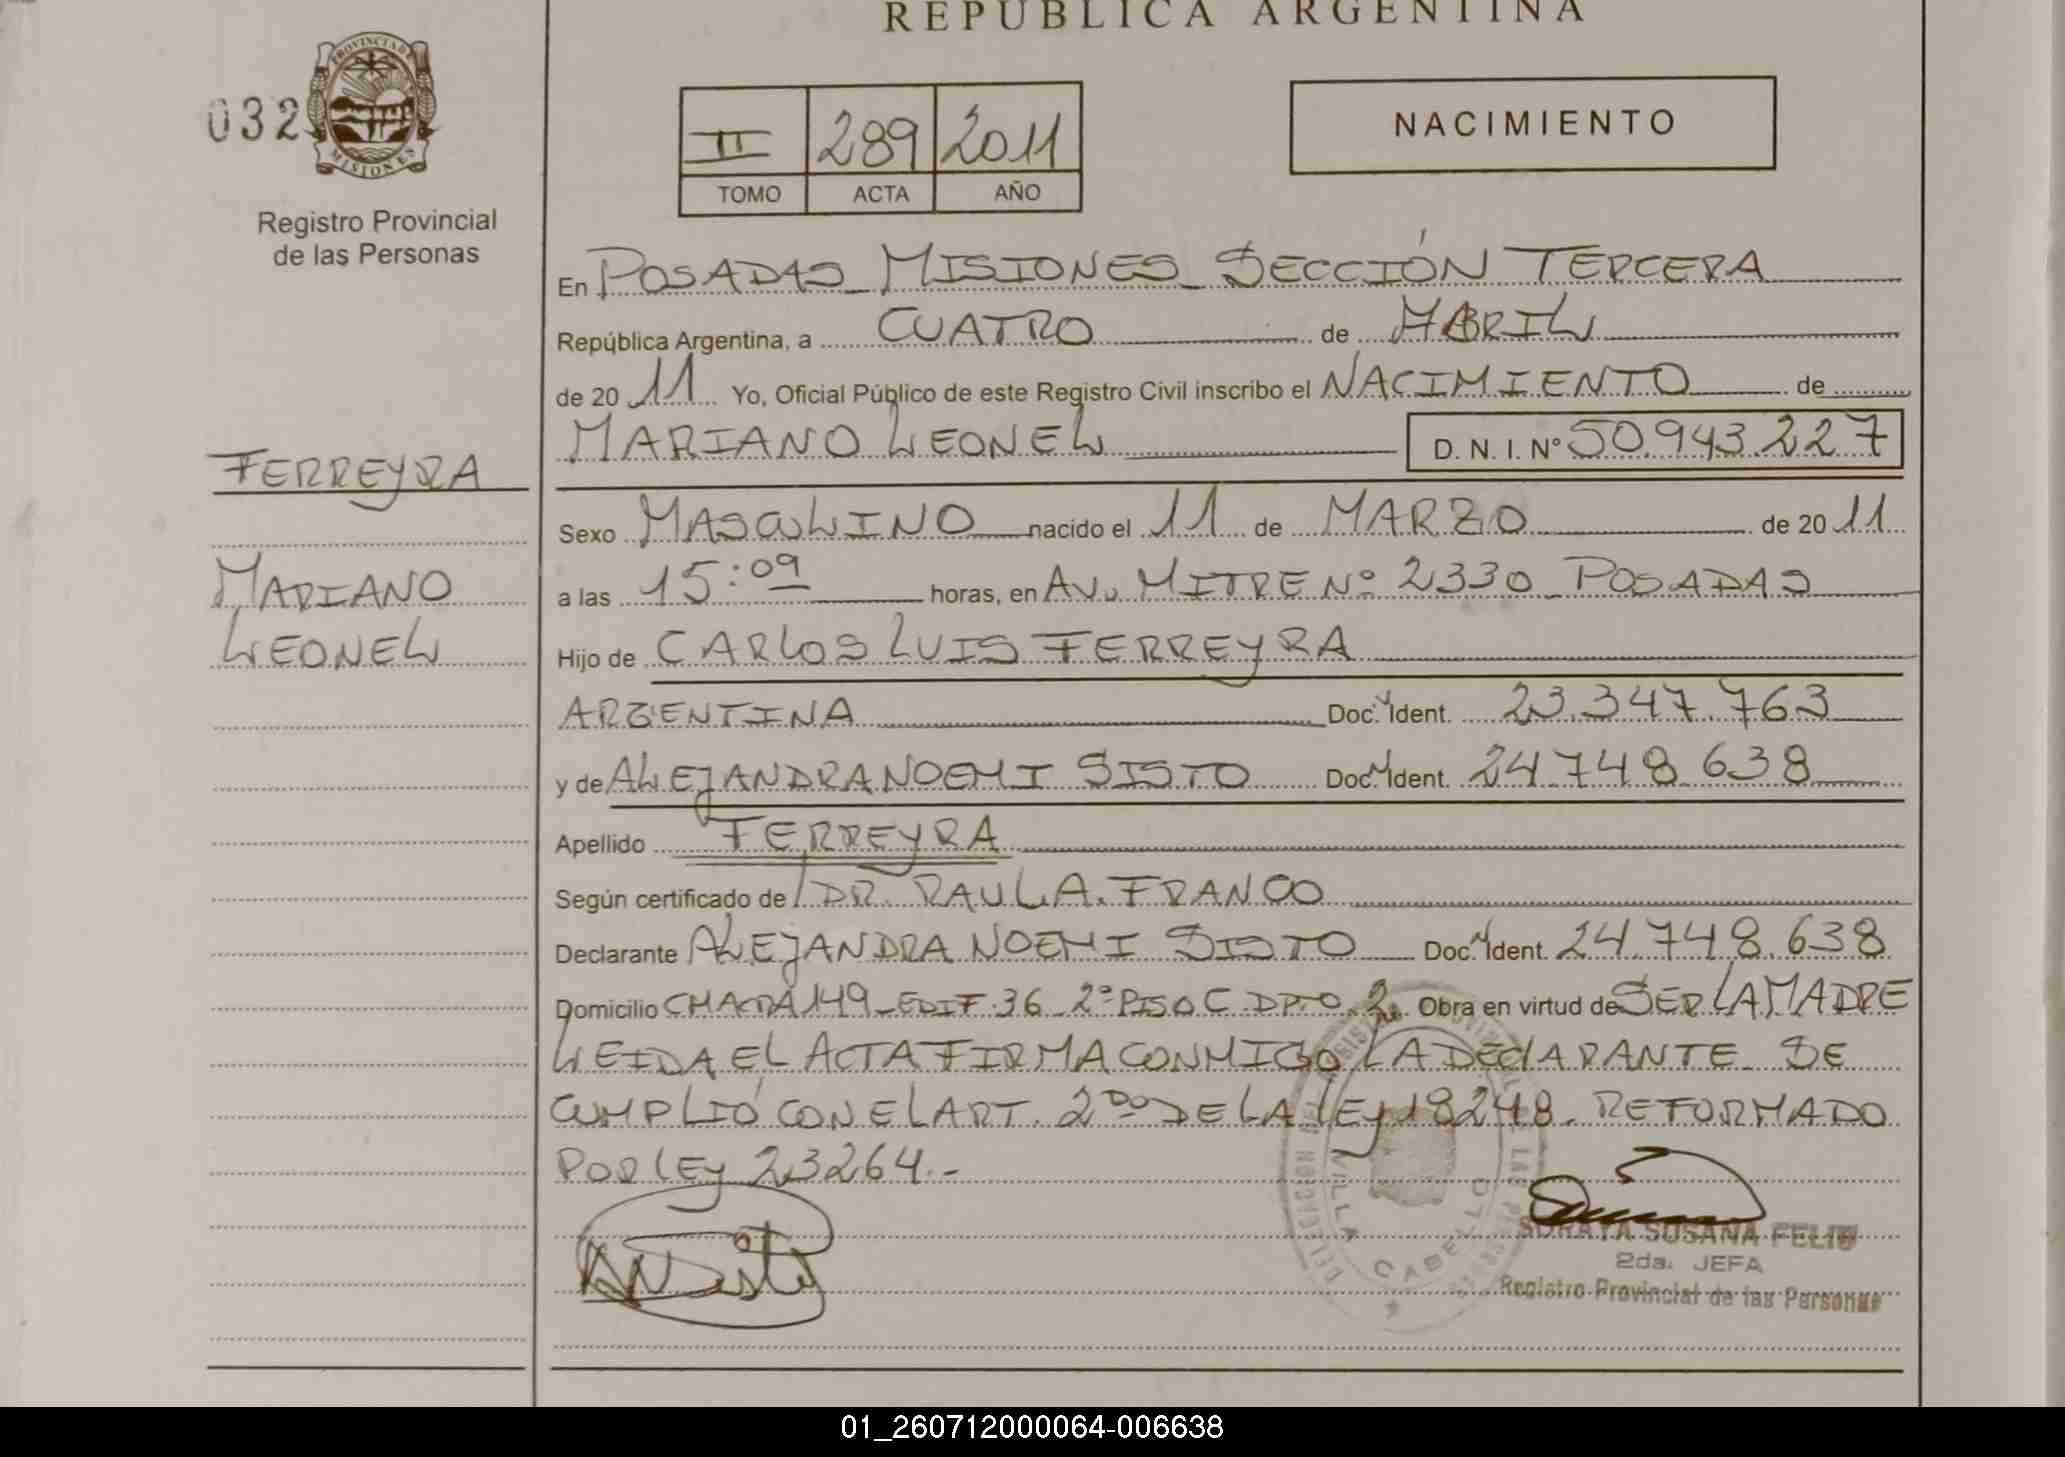 REPÚBLICA ARGENTINA
032
PROVINCIA DE MISIONES
Registro Provincial
de las Personas
II 289 2011
TOMO ACTA AÑO
NACIMIENTO
En POSADAS_MISIONES_SECCIÓN TERCERA
República Argentina, a CUATRO de ABRIL
de 20 11 Yo, Oficial Público de este Registro Civil inscribo el NACIMIENTO de
MARIANO LEONEL D. N. I. Nº 50.943.227
FERREYRA
MARIANO
LEONEL
Sexo MASCULINO nacido el 11 de MARZO de 20 11
a las 15:09 horas, en AV. MITRE Nº 2330_POSADAS
Hijo de CARLOS LUIS FERREYRA
ARGENTINA Doc. Ident. 23.347.763
y de ALEJANDRA NOEMI SISTO Doc. Ident. 24.748.638
Apellido FERREYRA
Según certificado de DR. RAUL A. FRANCO
Declarante ALEJANDRA NOEMI SISTO Doc. Ident. 24.748.638
Domicilio CHACRA 149_EDIF.36_2º PISO C.DPTO.2. Obra en virtud de SER LA MADRE
LEIDA EL ACTA FIRMA CONMIGO LA DECLARANTE_SE
CUMPLIÓ CON EL ART. 2DO DE LA LEY 18248_REFORMADO
POR LEY 23264.-
VILLA CABELLO
SORAYA SUSANA FELIU
2da. JEFA
Registro Provincial de las Personas
01_260712000064-006638